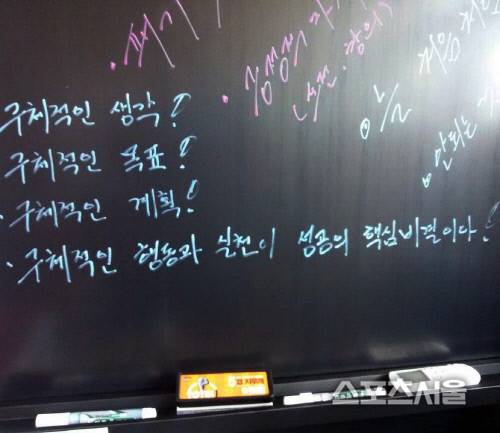 · 패기!
· 긍정적
(도전·창의)
1/2
안되는
구체적인 생각!
구체적인 목표!
· 구체적인 계획!
· 구체적인 행동과 실천이 성공의 핵심비결이다!
스포츠서울